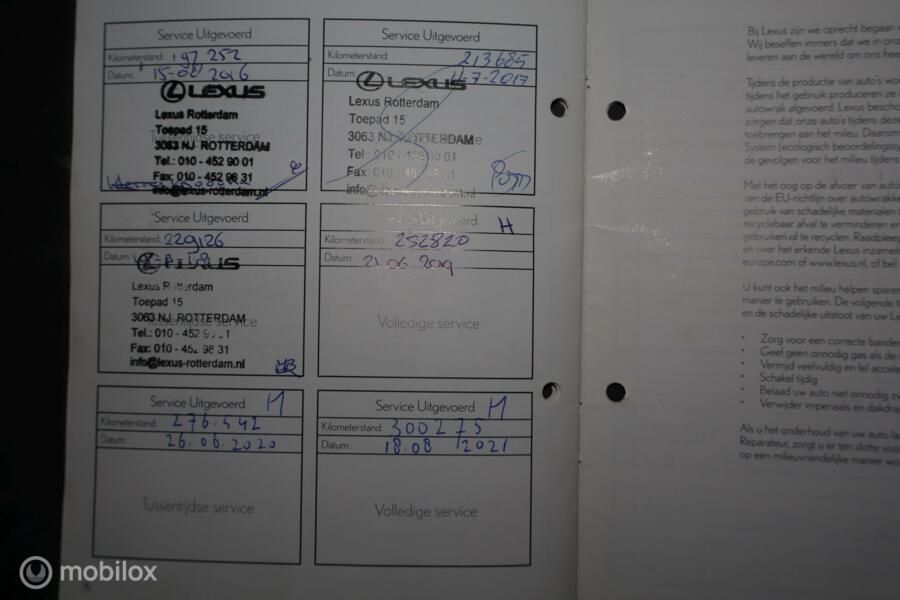 Service Uitgevoerd
Kilometerstand: 197 252
Datum: 15-08 2016
LEXUS
Lexus Rotterdam
Toepad 15
Tussentijdse service
3063 NJ ROTTERDAM
Tel.: 010 - 452 90 01
Fax: 010 - 452 98 31
info@lexus-rotterdam.nl
Service Uitgevoerd
Kilometerstand: 213685
Datum: 4-7-2017
LEXUS
Lexus Rotterdam
Toepad 15
3063 NJ ROTTERDAM
Tel 010 - 452 90 01
Fax: 010 - 452 98 31
info@lexus-rotterdam.nl
Service Uitgevoerd
Kilometerstand: 229126
Datum:
LEXUS
Lexus Rotterdam
Toepad 15
3063 NJ ROTTERDAM
Tussentijdse service
Tel.: 010 - 452
Fax: 010 - 452 98 31
info@lexus-rotterdam.nl
Service Uitgevoerd H
Kilometerstand: 252820
Datum: 21 06 2019
Volledige service
Service Uitgevoerd H
Kilometerstand: 276.542
Datum: 26.06.2020
Tussentijdse service
Service Uitgevoerd H
Kilometerstand: 300275
Datum: 18.08 2021
Volledige service
Bij Lexus zijn we oprecht begaan
Wij beseffen immers dat we in onz
leveren aan de wereld om ons hee
Tijdens de productie van auto's wo
tijdens het gebruik produceren ze
autowrak afgevoerd. Lexus bescho
zorgen dat onze auto's tijdens deze
toebrengen aan het milieu. Daarom
System (ecologisch beoordelingssy
de gevolgen voor het milieu tijdens
Met het oog op de afvoer van auto
van de EU-richtlijn over autowrakke
gebruik van schadelijke materialen
recyclebaar afval te verminderen en
gebruiken of te recyclen. Raadplee
en over het erkende Lexus inzamel
europe.com of www.lexus.nl, of bel:
U kunt ook het milieu helpen sparen
manier te gebruiken. De volgende t
en de schadelijke uitstoot van uw Le
• Zorg voor een correcte banden
• Geef geen onnodig gas als de
• Vermijd veelvuldig en fel accele
• Schakel tijdig
• Belaad uw auto niet onnodig zw
• Verwijder imperiaals en dakdra
Als u het onderhoud van uw auto la
Reparateur, zorgt u er ten slotte voor
op een milieuvriendelijke manier wo
mobilox